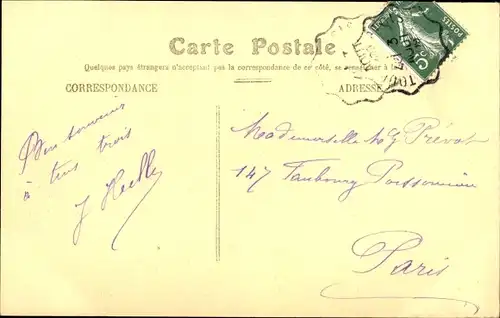 Carte Postale
Quelques pays étrangers n'acceptant pas la correspondance de ce côté, se renseigner à la
CORRESPONDANCE
ADRESSE
Bon souvenir
à tous trois
J
Mademoiselle Prévot
147 Faubourg Poissonnière
Paris
POSTES